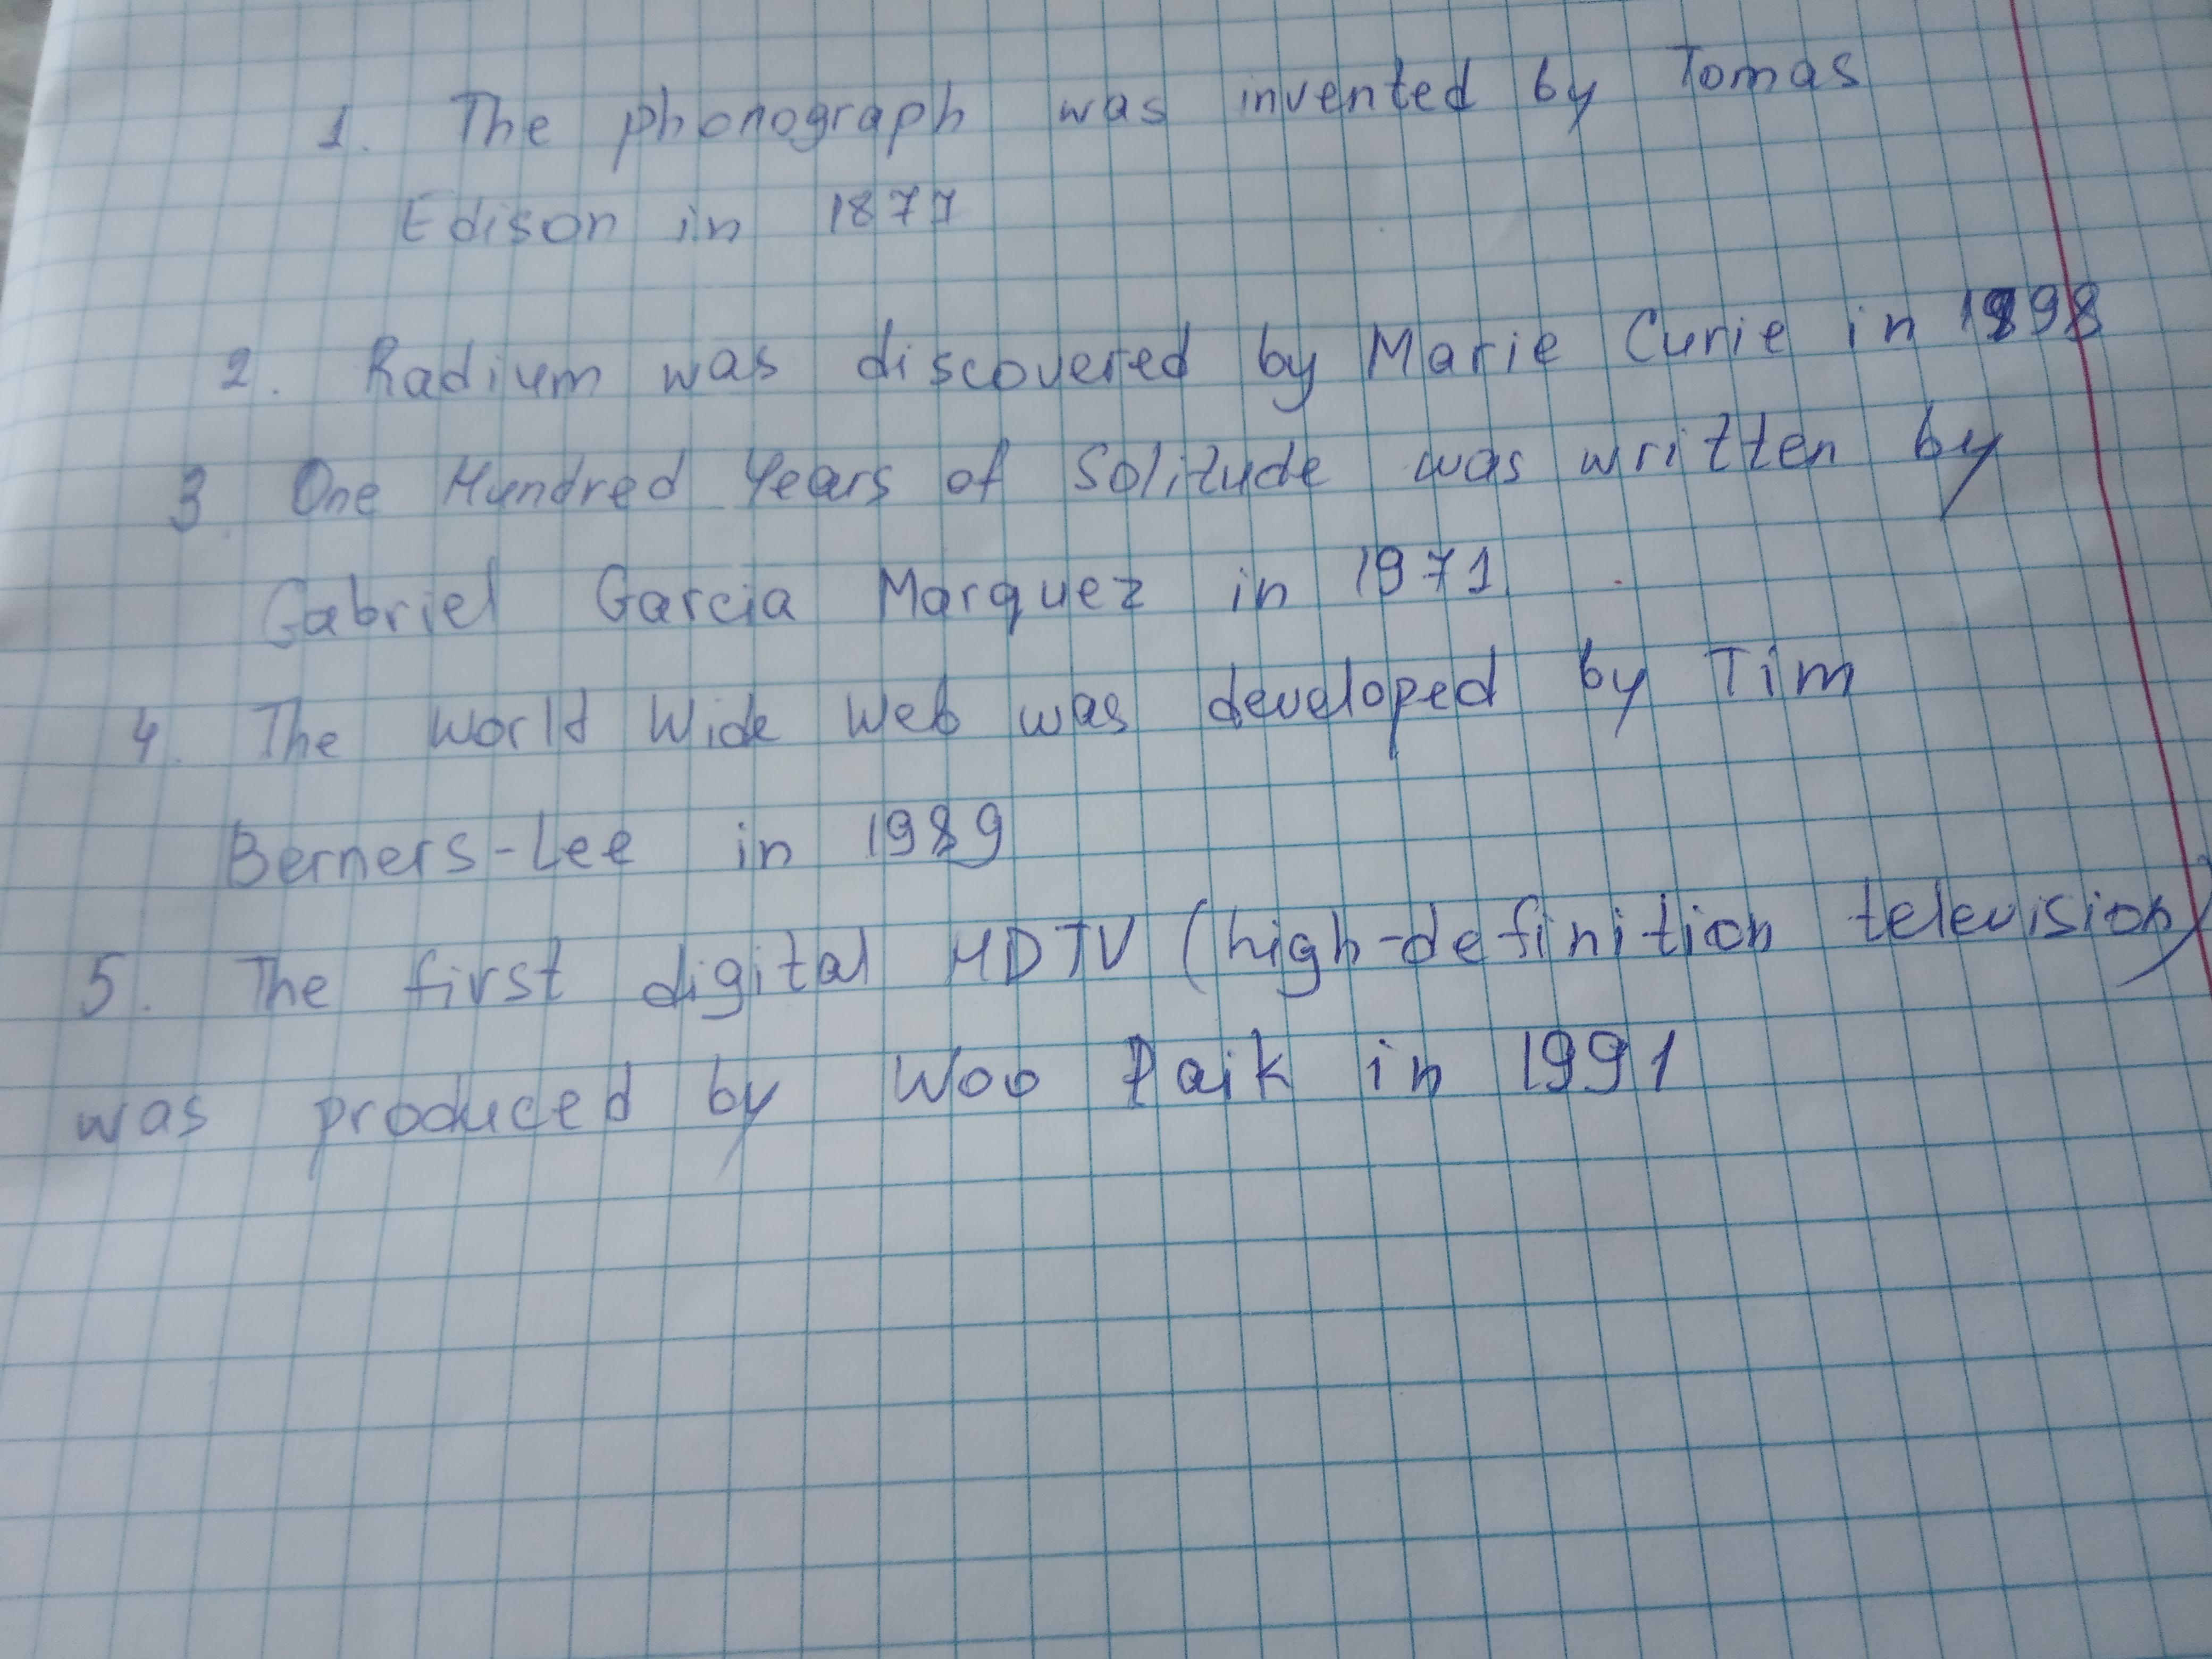 1. The phonograph was invented by Tomas
Edison in 1877
2. Radium was discovered by Marie Curie in 1898
3 One Hundred Years of Solitude was written by
Gabriel Garcia Marquez in 1971
4. The World Wide Web was developed by Tim
Berners-Lee in 1989
5. The first digital HDTV (high-definition television)
was produced by Woo Paik in 1991